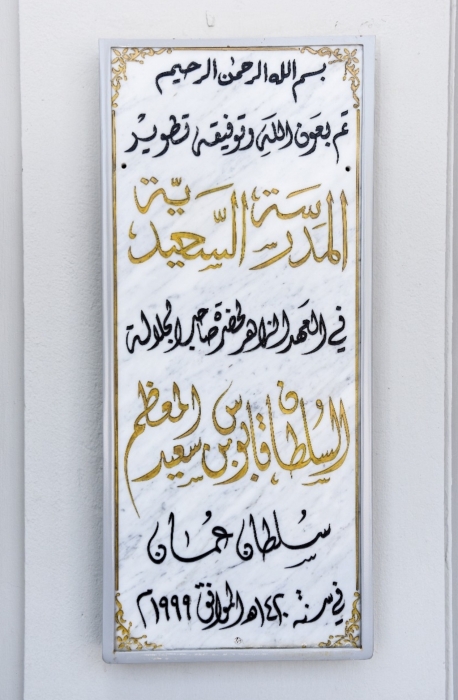 بسم الله الرحمن الرحيم
تم بعون الله وتوفيقه تطوير
المدرسة السعيدية
في العهد الزاهر لحضرة صاحب الجلالة
السلطان قابوس بن سعيد المعظم
سلطان عمان
في سنة ١٤٢٠هـ الموافق ١٩٩٩م